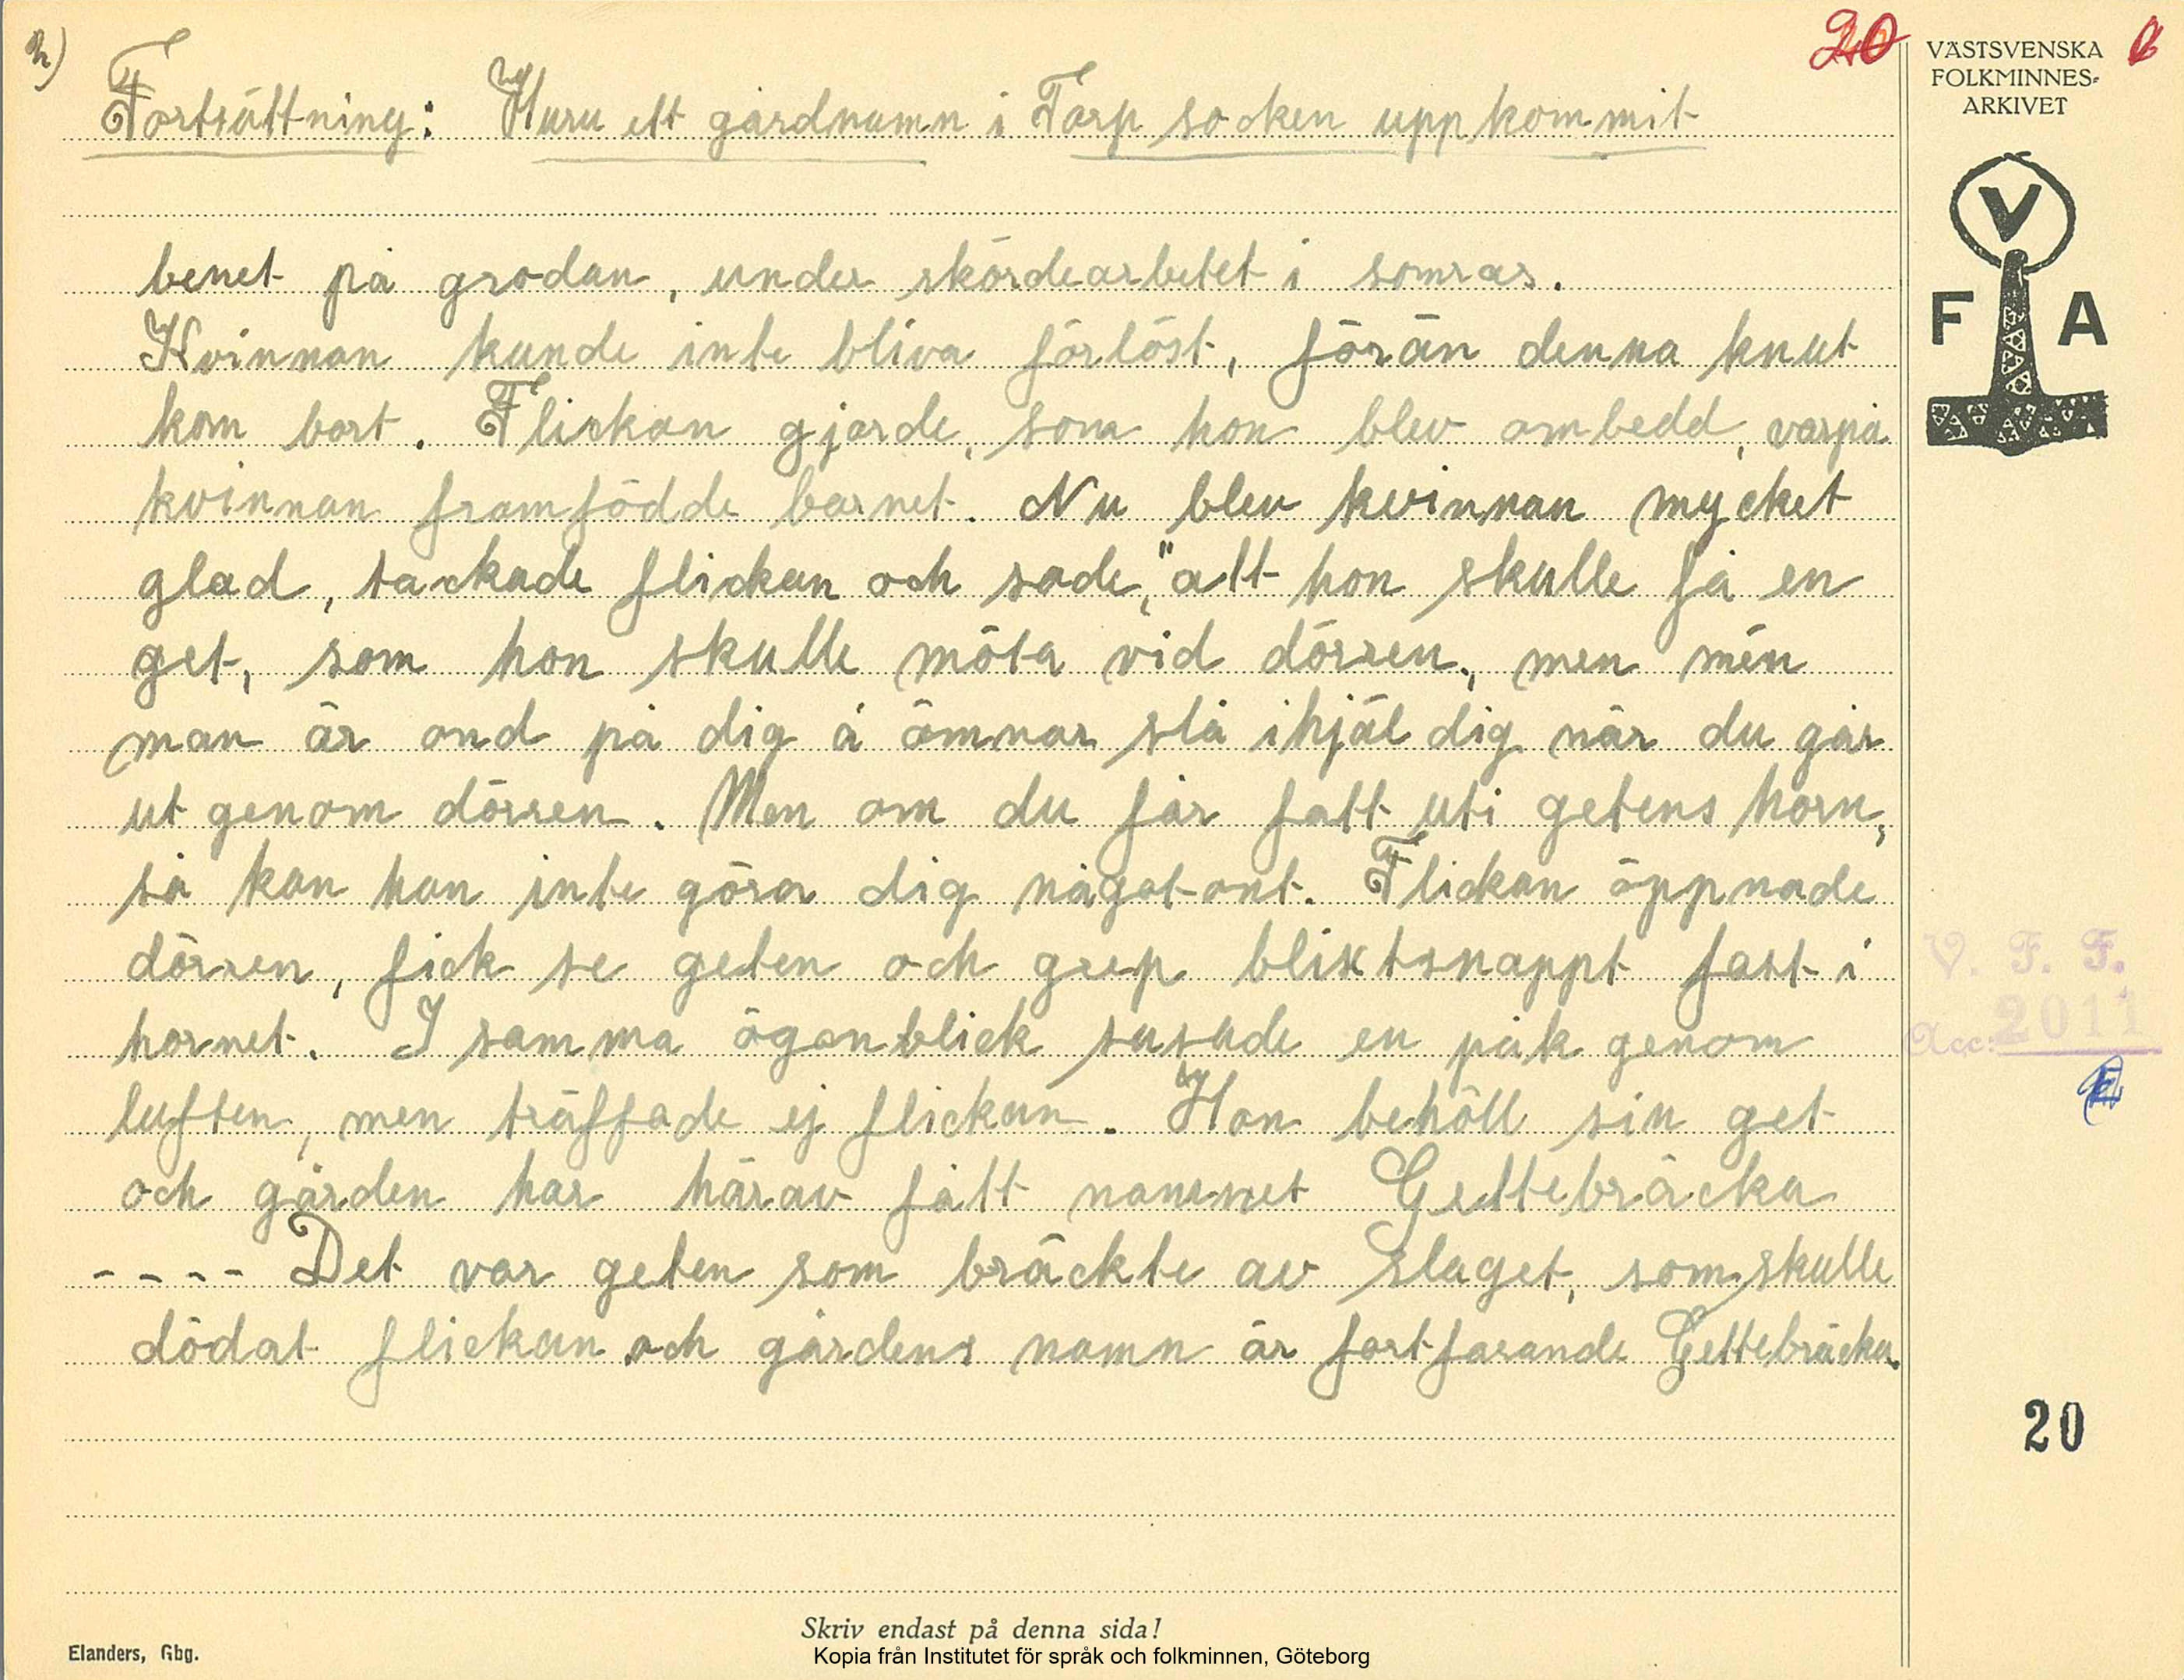 2)
20
VÄSTSVENSKA
FOLKMINNES-
ARKIVET
Fortsättning: Huru ett gårdnamn i Tarp socken uppkommit
V
F A
benet på grodan, under skördearbetet i somras.
Kvinnan kunde inte bliva förlöst, förän denna knut
kom bort. Flickan gjorde, som hon blev ombedd, varpå
kvinnan framfödde barnet. Nu blev kvinnan mycket
glad, tackade flickan och sade, "att hon skulle få en
get, som hon skulle möta vid dörren, men mén
man är ond på dig å ämnar slå ihjäl dig när du går
ut genom dörren. Men om du får fatt uti getens horn,
så kan han inte göra dig något ont. Flickan öppnade
dörren, fick se geten och grep blixtsnappt fast i
hornet. I samma ögonblick susade en påk genom
luften, men träffade ej flickan. Hon behöll sin get
och gården har härav fått namnet Gettebräcka
---- Det var geten som bräckte av slaget, som skulle
dödat flickan och gårdens namn är fortfarande Gettebräcka.
V. F. F.
Acc: 2011
20
Skriv endast på denna sida!
Elanders, Gbg.
Kopia från Institutet för språk och folkminnen, Göteborg